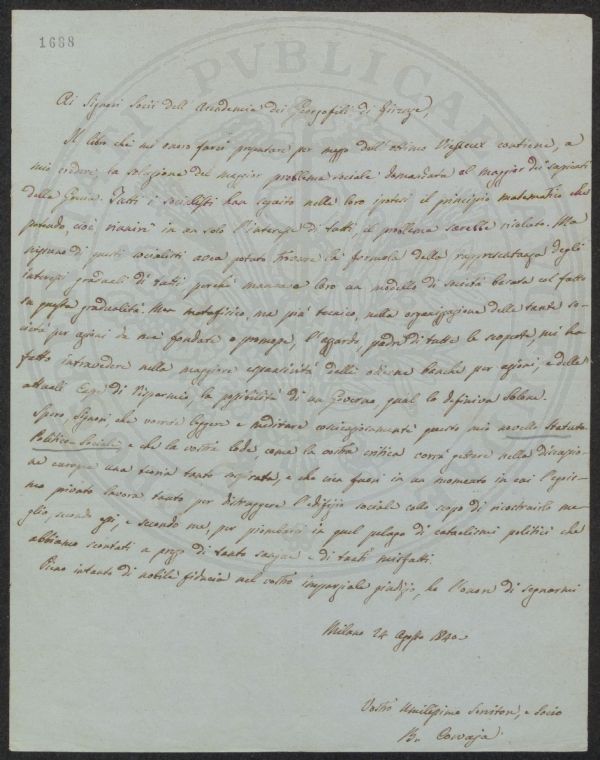 1688
Ai Signori Socii dell'Accademia dei Georgofili di Firenze,
Il libro che mi onoro farvi presentare per mezzo dell'ottimo Viesseux contiene, a
mio credere, la soluzione del maggior problema sociale domandata al maggior dei sapienti
della Grecia. Tutti i socialisti han seguito nelle loro ipotesi il principio matematico che
potendo, cioè riunire in un solo l'interesse di tutti, il problema sarebbe risoluto. Ma
nessuno di questi socialisti avea potuto trovare la formola della rappresentanza degli
interessi graduali di tutti, perchè mancava loro un modello di società basata col fatto
su questa gradualità. Men metafisico, ma più tecnico, nella organizzazione delle tante so-
cietà per azioni da me fondate o promosse, l'azzardo, padre di tutte le scoperte, mi ha
fatto intravedere nella maggiore espansività delle odierne banche per azioni, e delle
attuali Casse di Risparmio, la possibilità di un Governo, qual lo definiva Solone.
Spero, Signori, che vorrete leggere e meditare coscienziosamente questo mio novello Statuto
Politico-Sociale e che la vostra lode, come la vostra critica vorrà gettare nella discussio-
ne europea una teoria tanto sospirata, e che vien fuori in un momento in cui l'egois-
mo privato lavora tanto per distruggere l'edifizio sociale collo scopo di ricostruirlo me-
glio, secondo essi, e secondo me, per piombarci in quel pelago di cataclismi politici che
abbiamo scontati a prezzo di tanto sangue e di tanti misfatti.
Pieno intanto di nobile fiducia nel vostro imparziale giudizio, ho l'onore di segnarmi
Milano 24 Agosto 1840
Vostro Umilissimo Servitore, e Socio
Bn. Corvaja
PUBLICAE